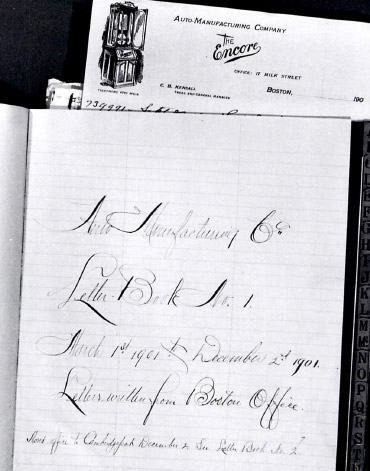 AUTO-MANUFACTURING COMPANY
THE
Encore
OFFICE: 17 MILK STREET
C. B. KENDALL
TREAS. AND GENERAL MANAGER
BOSTON, 190
Auto Manufacturing Co
Letter Book No. 1.
March 1st 1901 to December 2d 1901.
Letters written from Boston Office.
Move office to Cambridgeport December 2. See Letter Book No. 2
A
C
D
E
F
G
H
I
J
K
L
M
Mc
N
O
P
Q
R
S
T